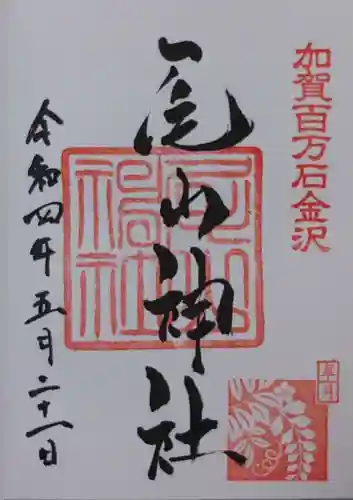 加賀百万石金沢
尾山神社
尾山神社
令和四年五月二十一日
皐月